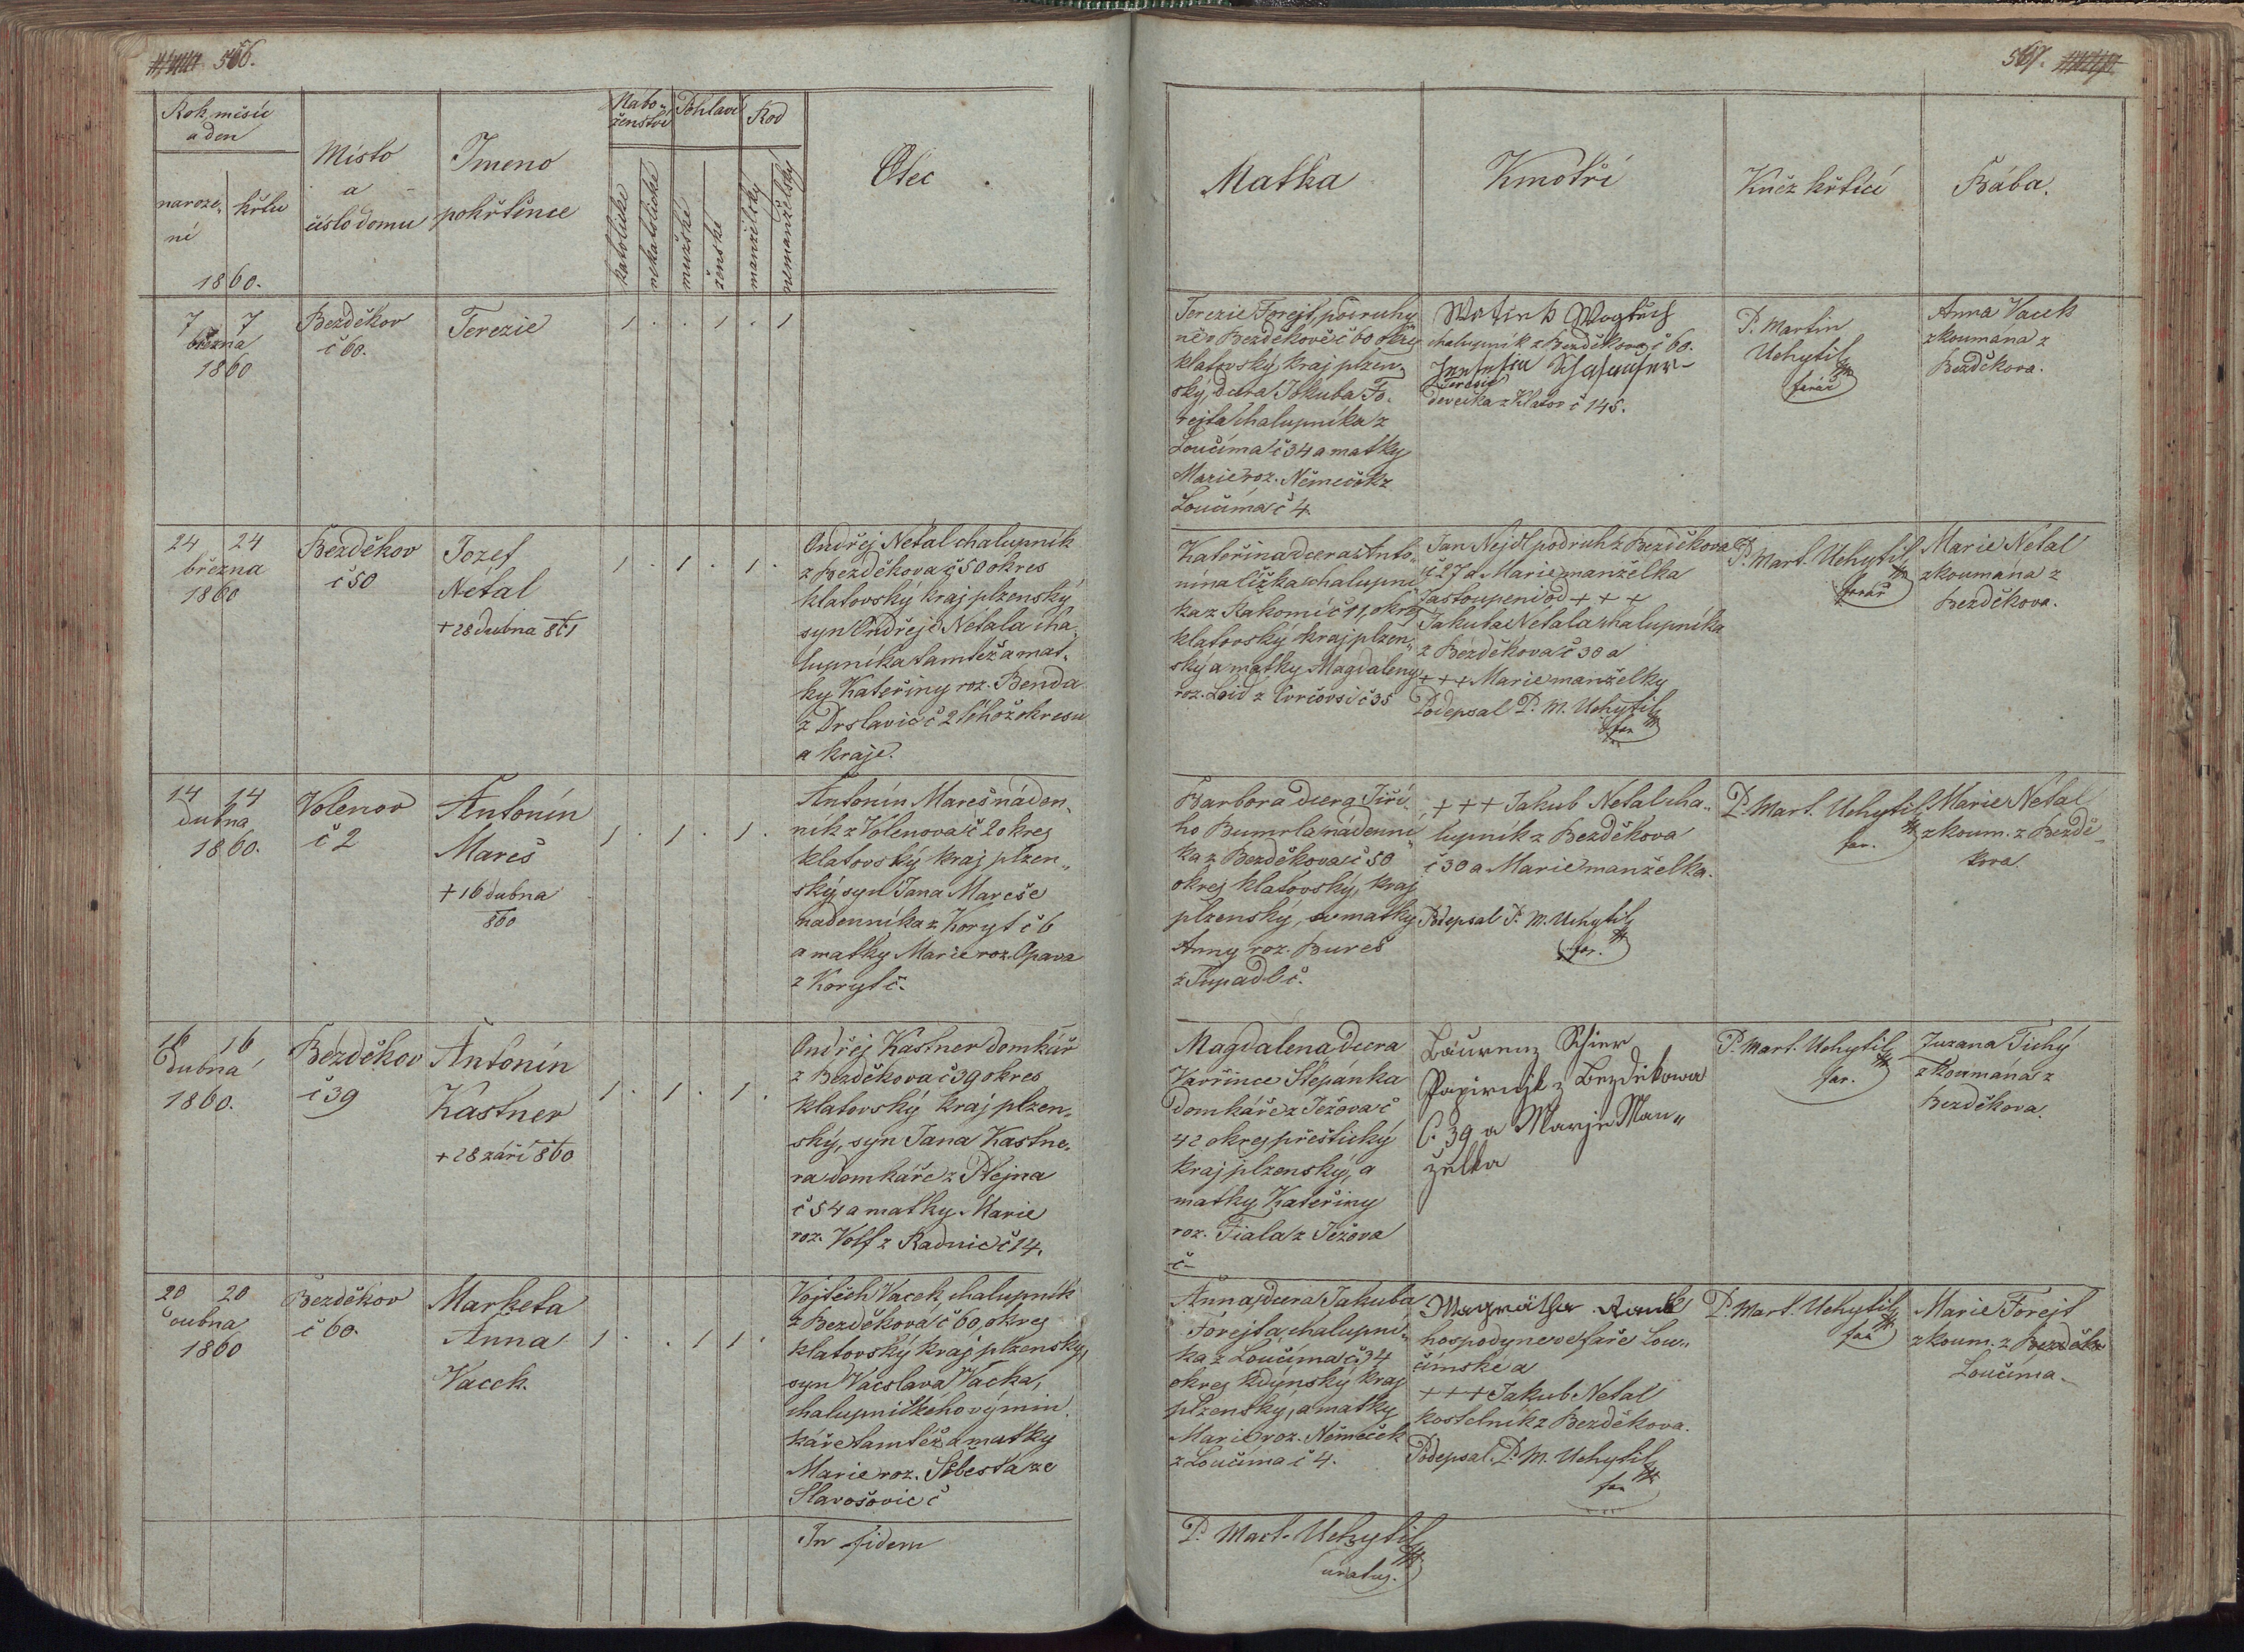 566.
Rok, měsíc
a den
naroze-
ní
křtu
1860.
Místo
a
číslo domu
Jmeno
pokřtěnce
Nabo-
ženství
katolické
nekatolické
Pohlaví
mužské
ženské
Rod
manželský
nemanželský
Otec
7 7
března
1860
Bezděkov
č 60.
Terezie
1 . . 1 . 1
24 24
března
1860
Bezděkov
č 50
Jozef
Netal
+ 28 dubna 861
1 . 1 . 1 .
Ondřej Netal chalupník
z Bezděkova č 50 okres
klatovský kraj plzenský
syn Ondřeje Netala cha-
lupníka tamtéž a mat-
ky Kateřiny roz. Benda
z Drslavic č 2 téhož okresu
a kraje.
14 14
dubna
1860.
Volenov
č 2
Antonín
Mareš
+ 16 dubna
860
1 . 1 . 1 .
Antonín Mareš náden-
ník z Volenova č 2 okres
klatovský kraj plzen-
ský, syn Jana Mareše
nadenníka z Koryt č 6
a matky Marie roz. Opava
z Koryt č.
16 16
dubna
1860.
Bezděkov
č 39
Antonín
Kastner
+ 28 září 860
1 . 1 . 1 .
Ondřej Kastner domkář
z Bezděkova č 39 okres
klatovský kraj plzen-
ský, syn Jana Kastne-
ra domkáře z
č 54 a matky Marie
roz. Volf z Radnic č 14.
20 20
dubna
1860
Bezděkov
č 60.
Marketa
Anna
Vacek.
1 . . 1 1 .
Vojtěch Vacek, chalupník
z Bezděkova č 60, okres
klatovský kraj plzenský,
syn Vácslava Vacka,
chalupnického výmin-
káře tamtéž a matky
Marie roz. Šebesta ze
Slavošovic č
In fidem
567.
Matka
Kmotři
Kněz křtící
Bába.
Terezie Forejt, podruhy-
ně v Bezděkově č 60 okres
klatovský kraj plzen-
ský, dcera Jakuba Fo-
rejta chalupníka z
Loučíma č 34 a matky
Marie roz. Němeček z
Loučíma č 4.
Wogtěch
chalupník z Bezděkova č 60.
Terezie
děvečka z Klatov č 145.
P. Martin
Uchytil
farář
Anna Vacek
zkoumána z
Bezděkova.
Kateřina dcera Anto-
nína Ližka chalupní-
ka z Rakomic č 11, okres
klatovský kraj plzen-
ský a matky Magdaleny
roz. Loid z Tvrčovsi č 35
Jan Nejdl podruh z Bezděkova
č 27 a Marie manželka
zastoupeni od + + +
Jakuba Netala chalupníka
z Bezděkova č 30 a
+ + + Marie manželky
Podepsal P. M. Uchytil
far
P. Mart. Uchytil
farář
Marie Netal
zkoumána z
Bezděkova.
Barbora dcera Jiří-
ho Bumrla nádenní-
ka z Bezděkova č 50
okres klatovský, kraj
plzenský, a matky
Anny roz. Bureš
z Tupadl č.
+ + + Jakub Netal cha-
lupník z Bezděkova
č 30 a Marie manželka.
Podepsal P. M. Uchytil
far.
P. Mart. Uchytil
far.
Marie Netal
zkoum. z Bezdě-
kova.
Magdalena dcera
Vavřince Štepánka
domkáře z Ježova č
42 okres přeštický
kraj plzenský, a
matky Kateřiny
roz. Fiala z Ježova
č –
Laurenz Schier
Papirnik z Bezdekowa
č. 39 a Marje Man-
želka
P. Mart. Uchytil
far.
Zuzana Tichý
zkoumaná z
Bezděkova.
Anna, dcera Jakuba
Forejta chalupní-
ka z Loučíma č 34
okres kdýnský kraj
plzenský, a matky
Marie roz. Němeček
z Loučíma č 4.
hospodyne ve faře Lou-
čímské a
+ + + Jakub Netal
kostelník z Bezděkova.
Podepsal P. M. Uchytil
far
P. Mart. Uchytil
far
Marie Forejt
zkoum. z
Loučíma.
P. Mart. Uchytil
curatus.